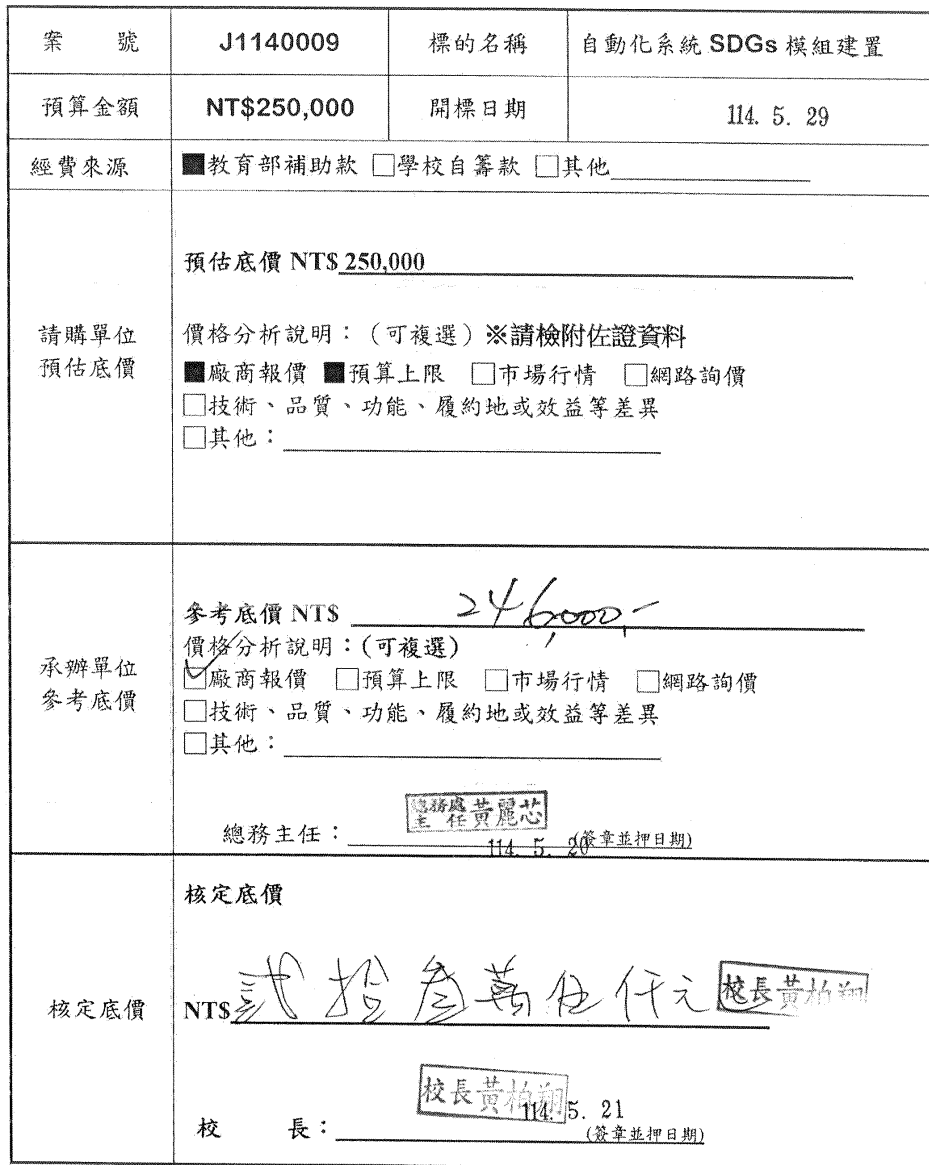 案 號 J1140009 標的名稱 自動化系統 SDGs 模組建置
預算金額 NT$250,000 開標日期 114. 5. 29
經費來源 ■教育部補助款 □學校自籌款 □其他
預估底價 NT$ 250,000
請購單位
預估底價
價格分析說明：（可複選）※請檢附佐證資料
■廠商報價 ■預算上限 □市場行情 □網路詢價
□技術、品質、功能、履約地或效益等差異
□其他：
承辦單位
參考底價
參考底價 NT$ 246,000,-
價格分析說明：(可複選)
☑廠商報價 □預算上限 □市場行情 □網路詢價
□技術、品質、功能、履約地或效益等差異
□其他：
總務處
主 任 黃麗芯
總務主任： 114. 5. 20 (簽章並押日期)
核定底價
核定底價
NT$ 貳拾叁萬伍仟元 校長黃柏翔
校長黃柏翔
校 長： 114. 5. 21
(簽章並押日期)